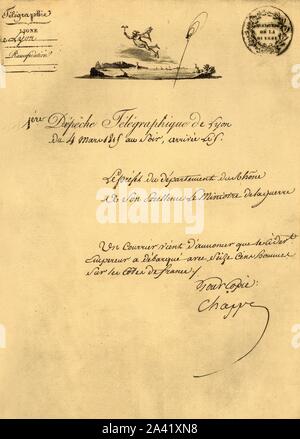 Télégraphie
LIGNE
de Lyon
Transmission
MINISTÈRE
DE LA
GUERRE
1ère Dépêche Télégraphique de Lyon
du 4 mars 1815 au Soir, arrivée Le 5.
Le préfet du département du Rhône
à Son Excellence le Ministre de la guerre
Un Courrier vient d'annoncer que le
Empereur a débarqué avec Seize Cens hommes
sur les Côtes de france /
Pour Copie:
Chappe
alamy
Image ID: 2A41XN8
www.alamy.com